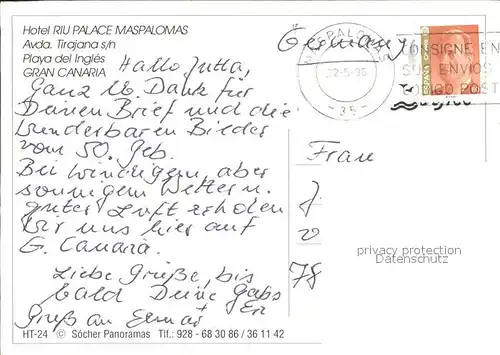 Hotel RIU PALACE MASPALOMAS
Avda. Tirajana s/n
Playa del Inglés
GRAN CANARIA
Germany
MASPALOMAS
-2-5-96
- 35 -
CONSIGNE EN
SUS ENVIOS
CODIGO POST
ESPAÑA
Hallo Jutta,
Ganz lb. Dank für
Deinen Brief und die
wunderbaren Bilder
vom 50. Geb.
Bei windigem, aber
sonnigem Wetter u.
guter Luft erholen
wir uns hier auf
G. Canaria.
Liebe Grüße, bis
bald Deine Gabs
Gruß an Elmar
Frau
J
78
privacy protection
Datenschutz
HT-24 © Söcher Panoramas Tlf.: 928 - 68 30 86 / 36 11 42